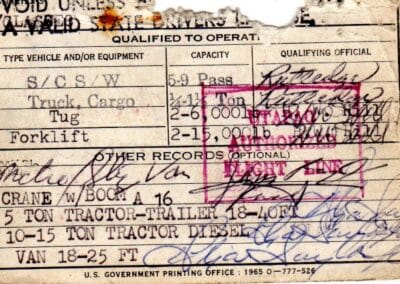 VOID UNLESS A
CLASSES
A VALID STATE DRIVERS L SE.
QUALIFIED TO OPERATE
TYPE VEHICLE AND/OR EQUIPMENT CAPACITY QUALIFYING OFFICIAL
S/C S/W 5-9 Pass
Truck, Cargo ¼-1½ Ton
Tug 2-6,000lb
Forklift 2-15,000lb
UTAPAO
AUTHORIZED
FLIGHT LINE
OTHER RECORDS (OPTIONAL)
Metro Van
CRANE W/BOOM A 16
5 TON TRACTOR-TRAILER 18-40FT
10-15 TON TRACTOR DIESEL
VAN 18-25 FT
U.S. GOVERNMENT PRINTING OFFICE : 1965 O-777-526